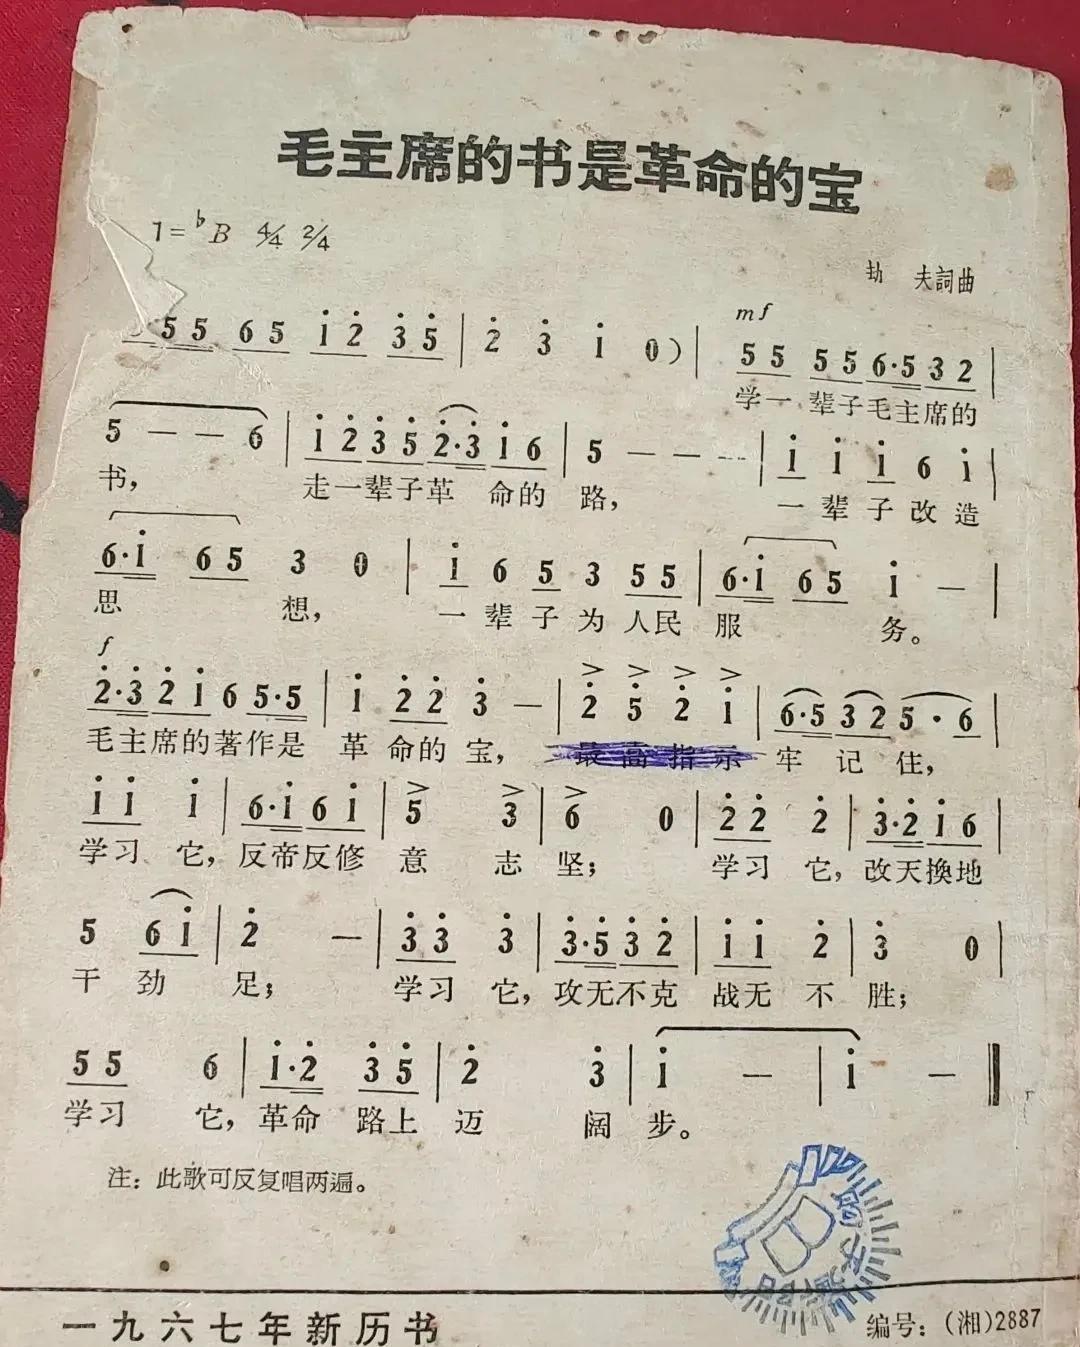 毛主席的书是革命的宝
1=♭B 4/4 2/4
劫 夫詞曲
mf
5 5 6 5 i 2̇ 3̇ 5̇ | 2̇ 3̇ i 0) | 5 5 5 5 6·5 3 2 |
学一 辈子毛主席的
5 — — 6 | i 2̇ 3̇ 5̇ 2̇·3̇ i 6 | 5 — — — | i i i 6 i |
书， 走一辈子革 命的 路， 一 辈 子 改 造
6·i 6 5 3 0 | i 6 5 3 5 5 | 6·i 6 5 i — |
思 想， 一 辈 子 为 人民 服 务。
f
2̇·3̇ 2̇ i 6 5·5 | i 2̇ 2̇ 3̇ — | 2̇ 5̇ 2̇ i | 6·5 3 2 5 · 6 |
毛主席的著作是 革 命的 宝， 最高指示 牢 记 住，
i i i | 6·i 6 i | 5 3̇ | 6 0 | 2̇ 2̇ 2̇ | 3̇·2̇ i 6 |
学习 它，反帝反修 意 志 坚； 学习 它，改天換地
5 6 i | 2̇ — | 3̇ 3̇ 3̇ | 3̇·5̇ 3̇ 2̇ | i i 2̇ | 3̇ 0 |
干 劲 足； 学习 它，攻无不克 战无 不 胜；
5 5 6 | i·2̇ 3̇ 5̇ | 2̇ 3̇ | i — | i — ‖
学习 它，革命 路上 迈 阔 步。
注：此歌可反复唱两遍。
一九六七年新历书
编号：(湘)2887